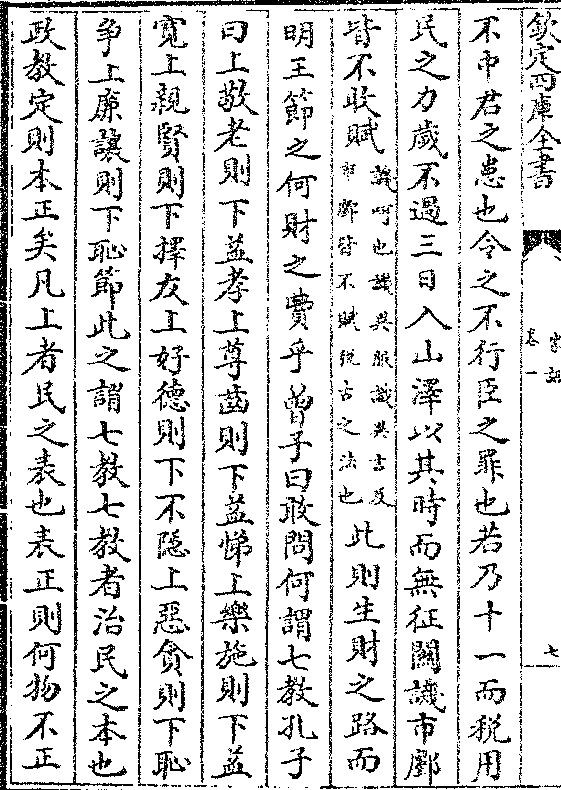 欽定四庫全書
家語
卷一
七
不布君之患也令之不行臣之罪也若乃十一而稅用
民之力歲不過三日入山澤以其時而無征關譏市鄽
皆不收賦譏呵也譏異服識異言及市鄽皆不賦稅古之法也此則生財之路而
明王節之何財之費乎曾子曰敢問何謂七教孔子
曰上敬老則下益孝上尊齒則下益悌上樂施則下益
寬上親賢則下擇友上好德則下不隱上惡貪則下恥
争上廉讓則下恥節此之謂七教七教者治民之本也
政教定則本正矣凡上者民之表也表正則何物不正